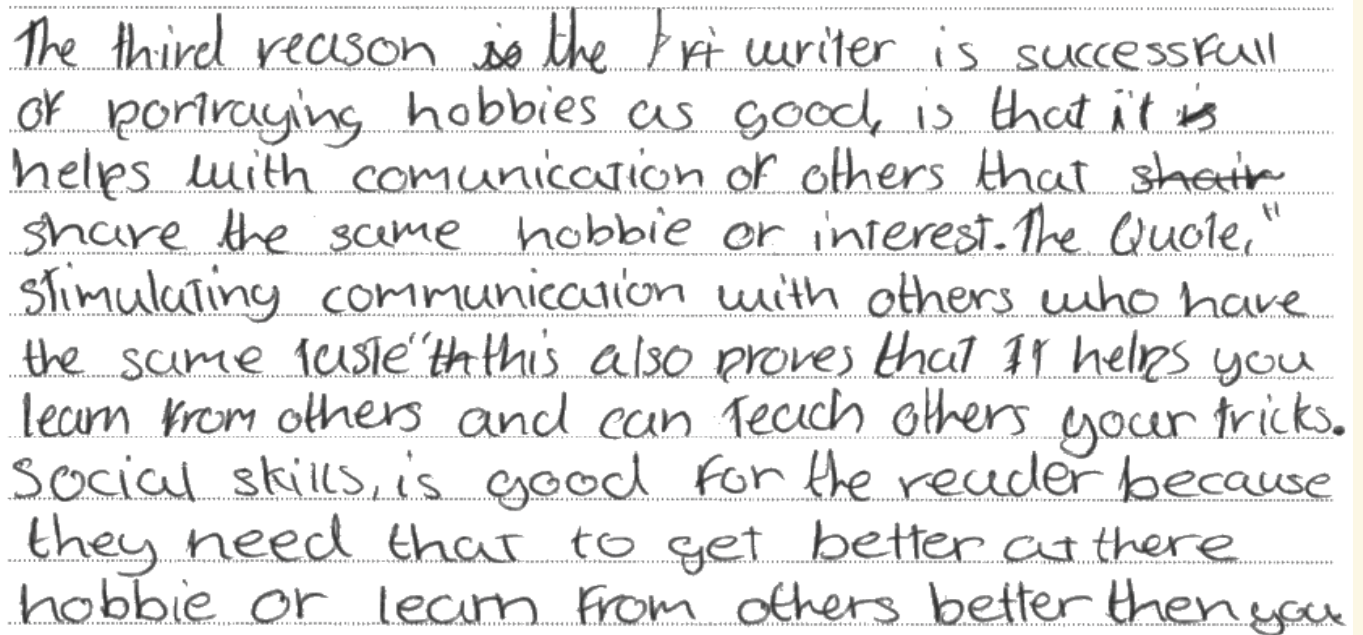 The third reason the writer is successfull
of portraying hobbies as good, is that it
helps with comunication of others that shair
share the same hobbie or interest. The Quote, "
stimulating communication with others who have
the same taste" th this also proves that It helps you
learn from others and can teach others your tricks.
Social skills, is good for the reader because
they need that to get better at there
hobbie or learn from others better then you